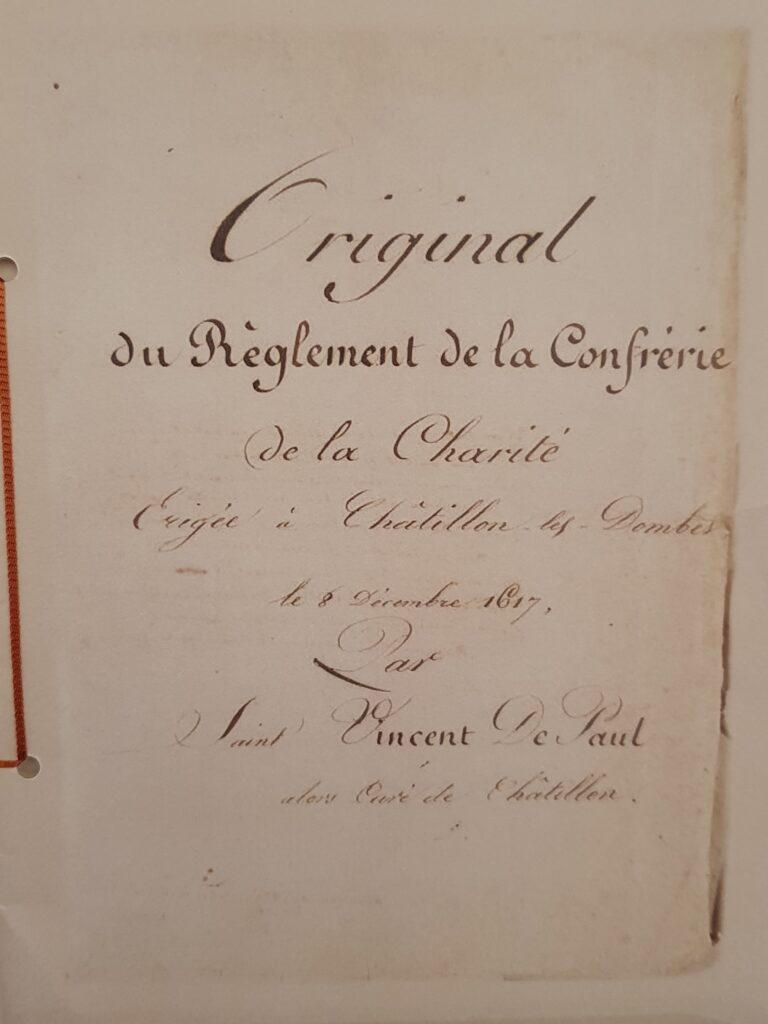 Original
du Règlement de la Confrérie
de la Charité
Erigée à Châtillon-les-Dombes
le 8 Décembre 1617,
Par
Saint Vincent De Paul
alors Curé de Châtillon.